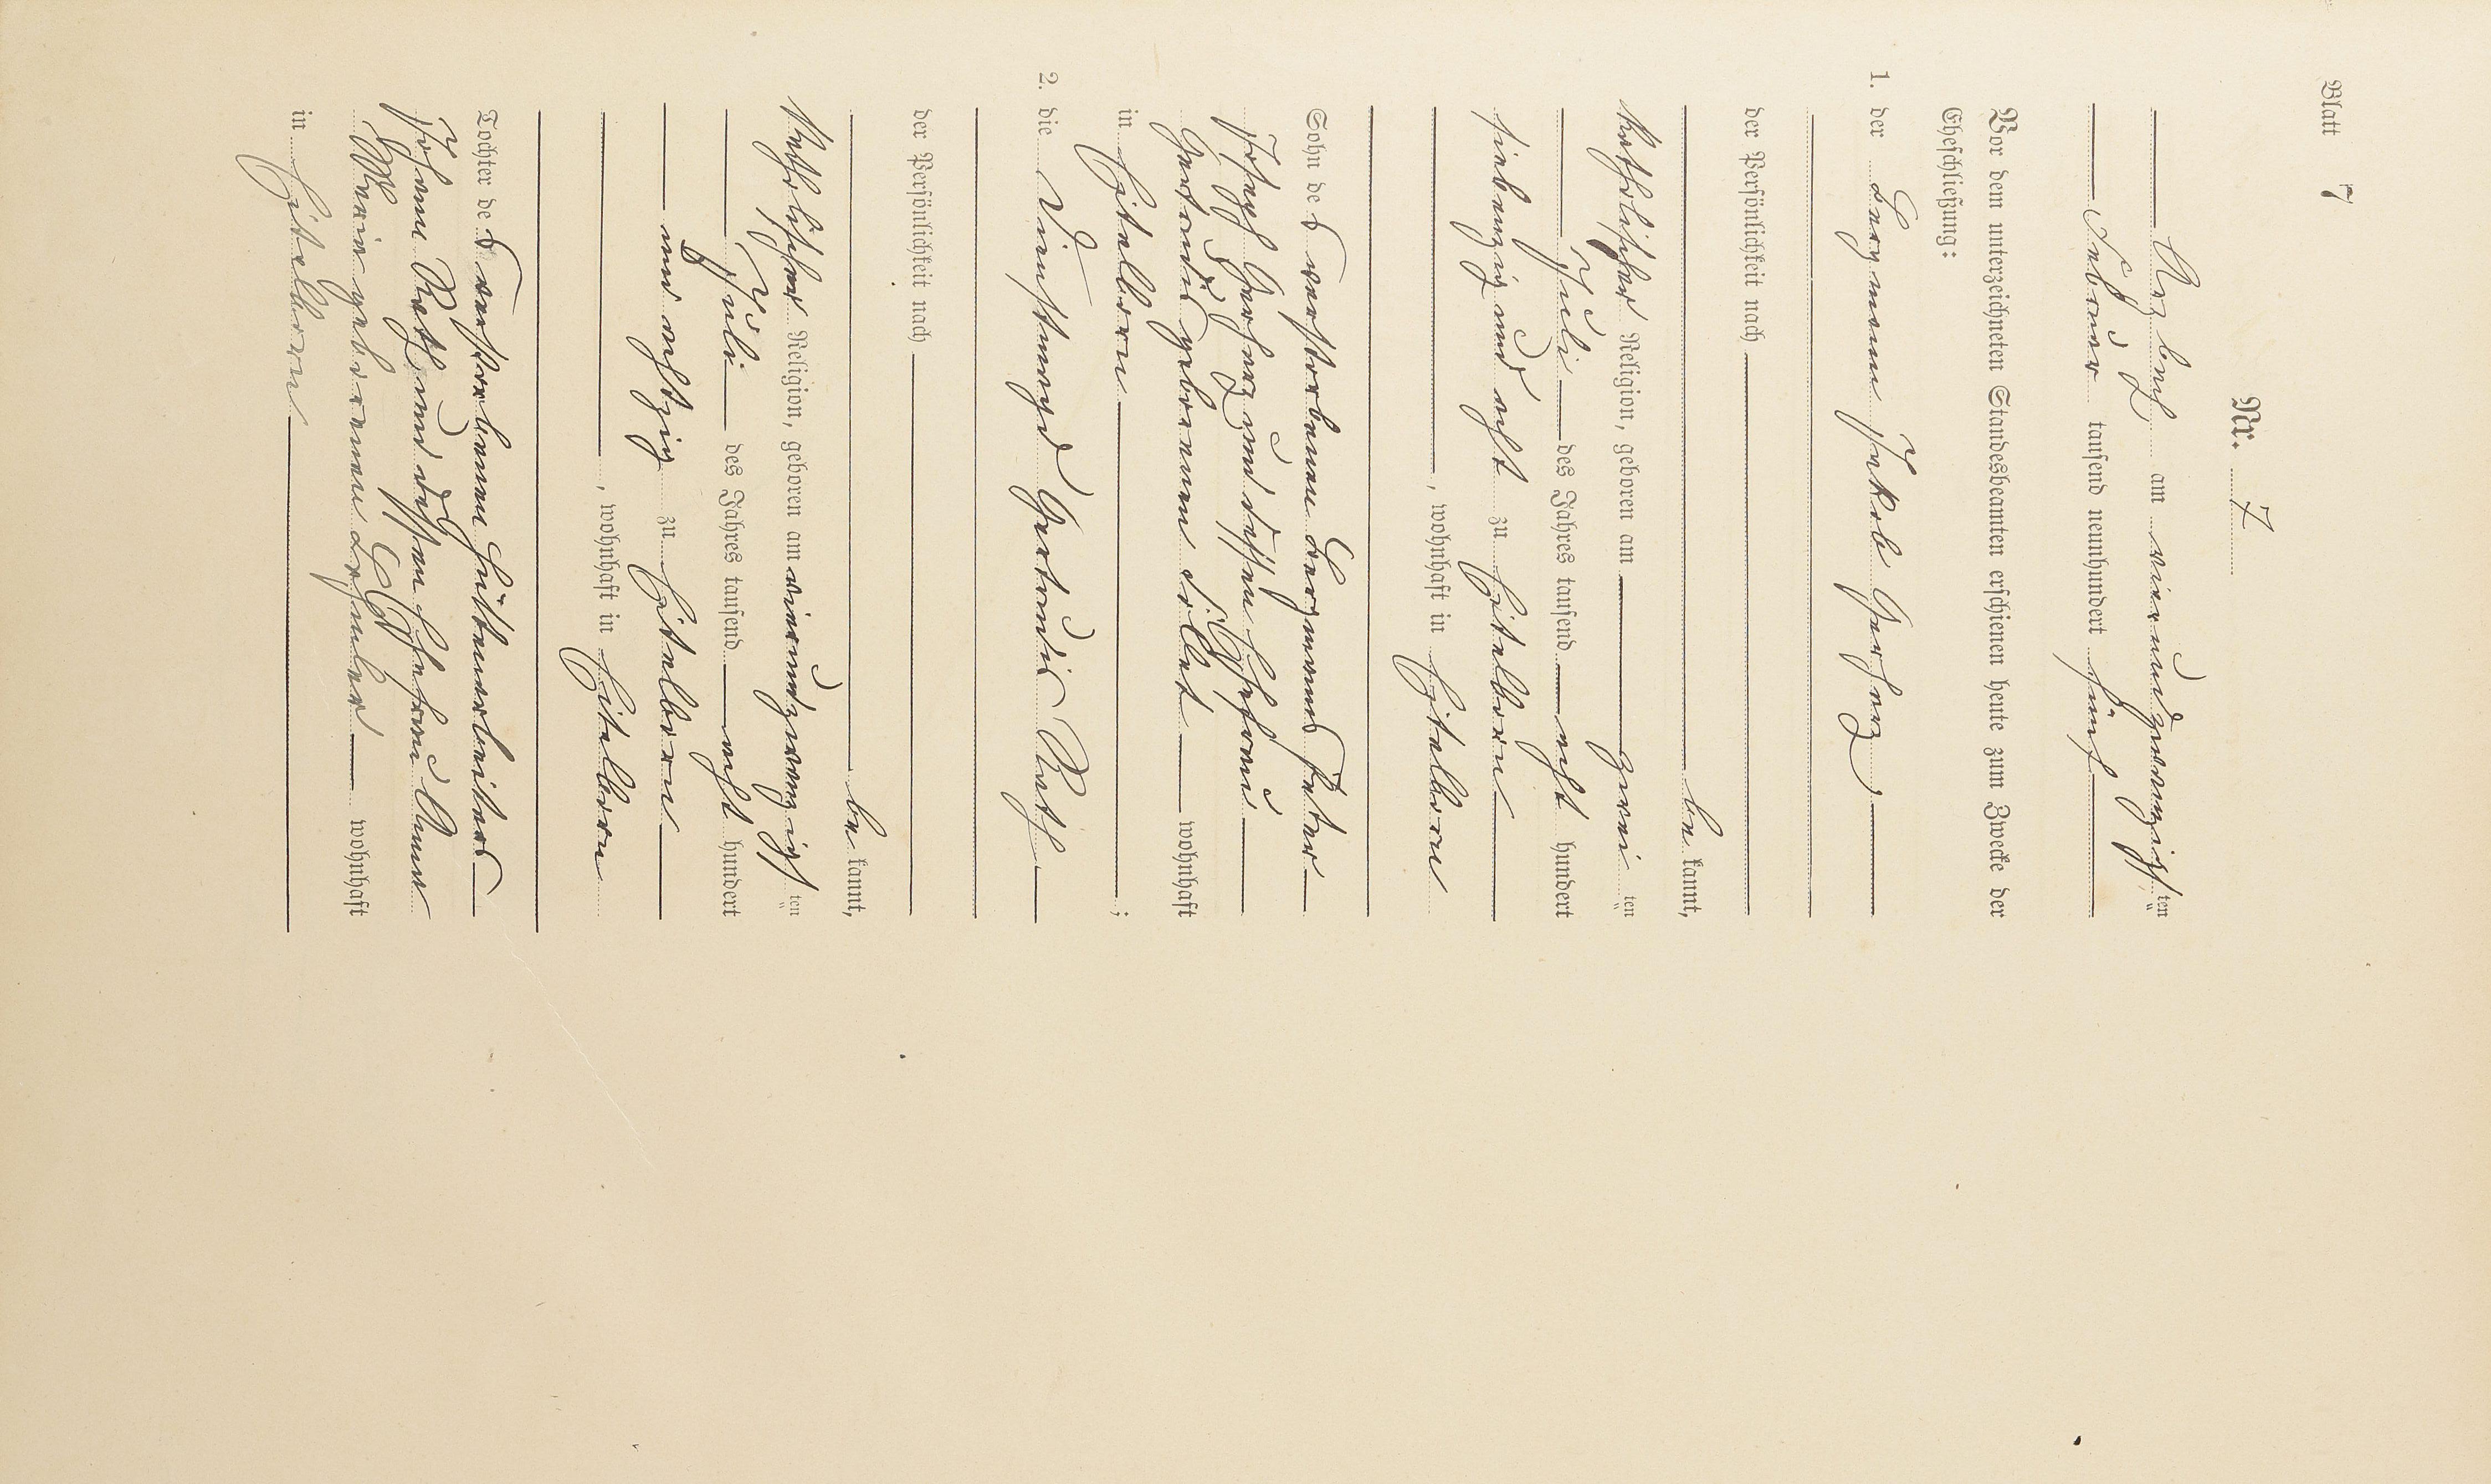 Blatt 7
Nr. 7
Arzbach am vierundzwanzigsten
Februar tausend neunhundert fünf
Vor dem unterzeichneten Standesbeamten erschienen heute zum Zwecke der
Eheschließung:
1. der Bergmann Jakob Gerharz
der Persönlichkeit nach
be kannt,
katholischer Religion, geboren am zwei ten
Juli des Jahres tausend acht hundert
siebenzig und acht zu Eitelborn
, wohnhaft in Eitelborn
Sohn des verstorbenen Bergmanns Peter
Joseph Gerharz und dessen Ehefrau
Gertrud geborenen wohnhaft
in Eitelborn ;
2. die Dienstmagd Gertrud Roth
der Persönlichkeit nach
be kannt,
katholischer Religion, geboren am vierundzwanzigsten
Juli des Jahres tausend acht hundert
und achtzig zu Eitelborn
, wohnhaft in Eitelborn
Tochter des verstorbenen Hüttenarbeiters
Johann Roth und dessen Ehefrau Anna
Maria geborenen wohnhaft
in Eitelborn